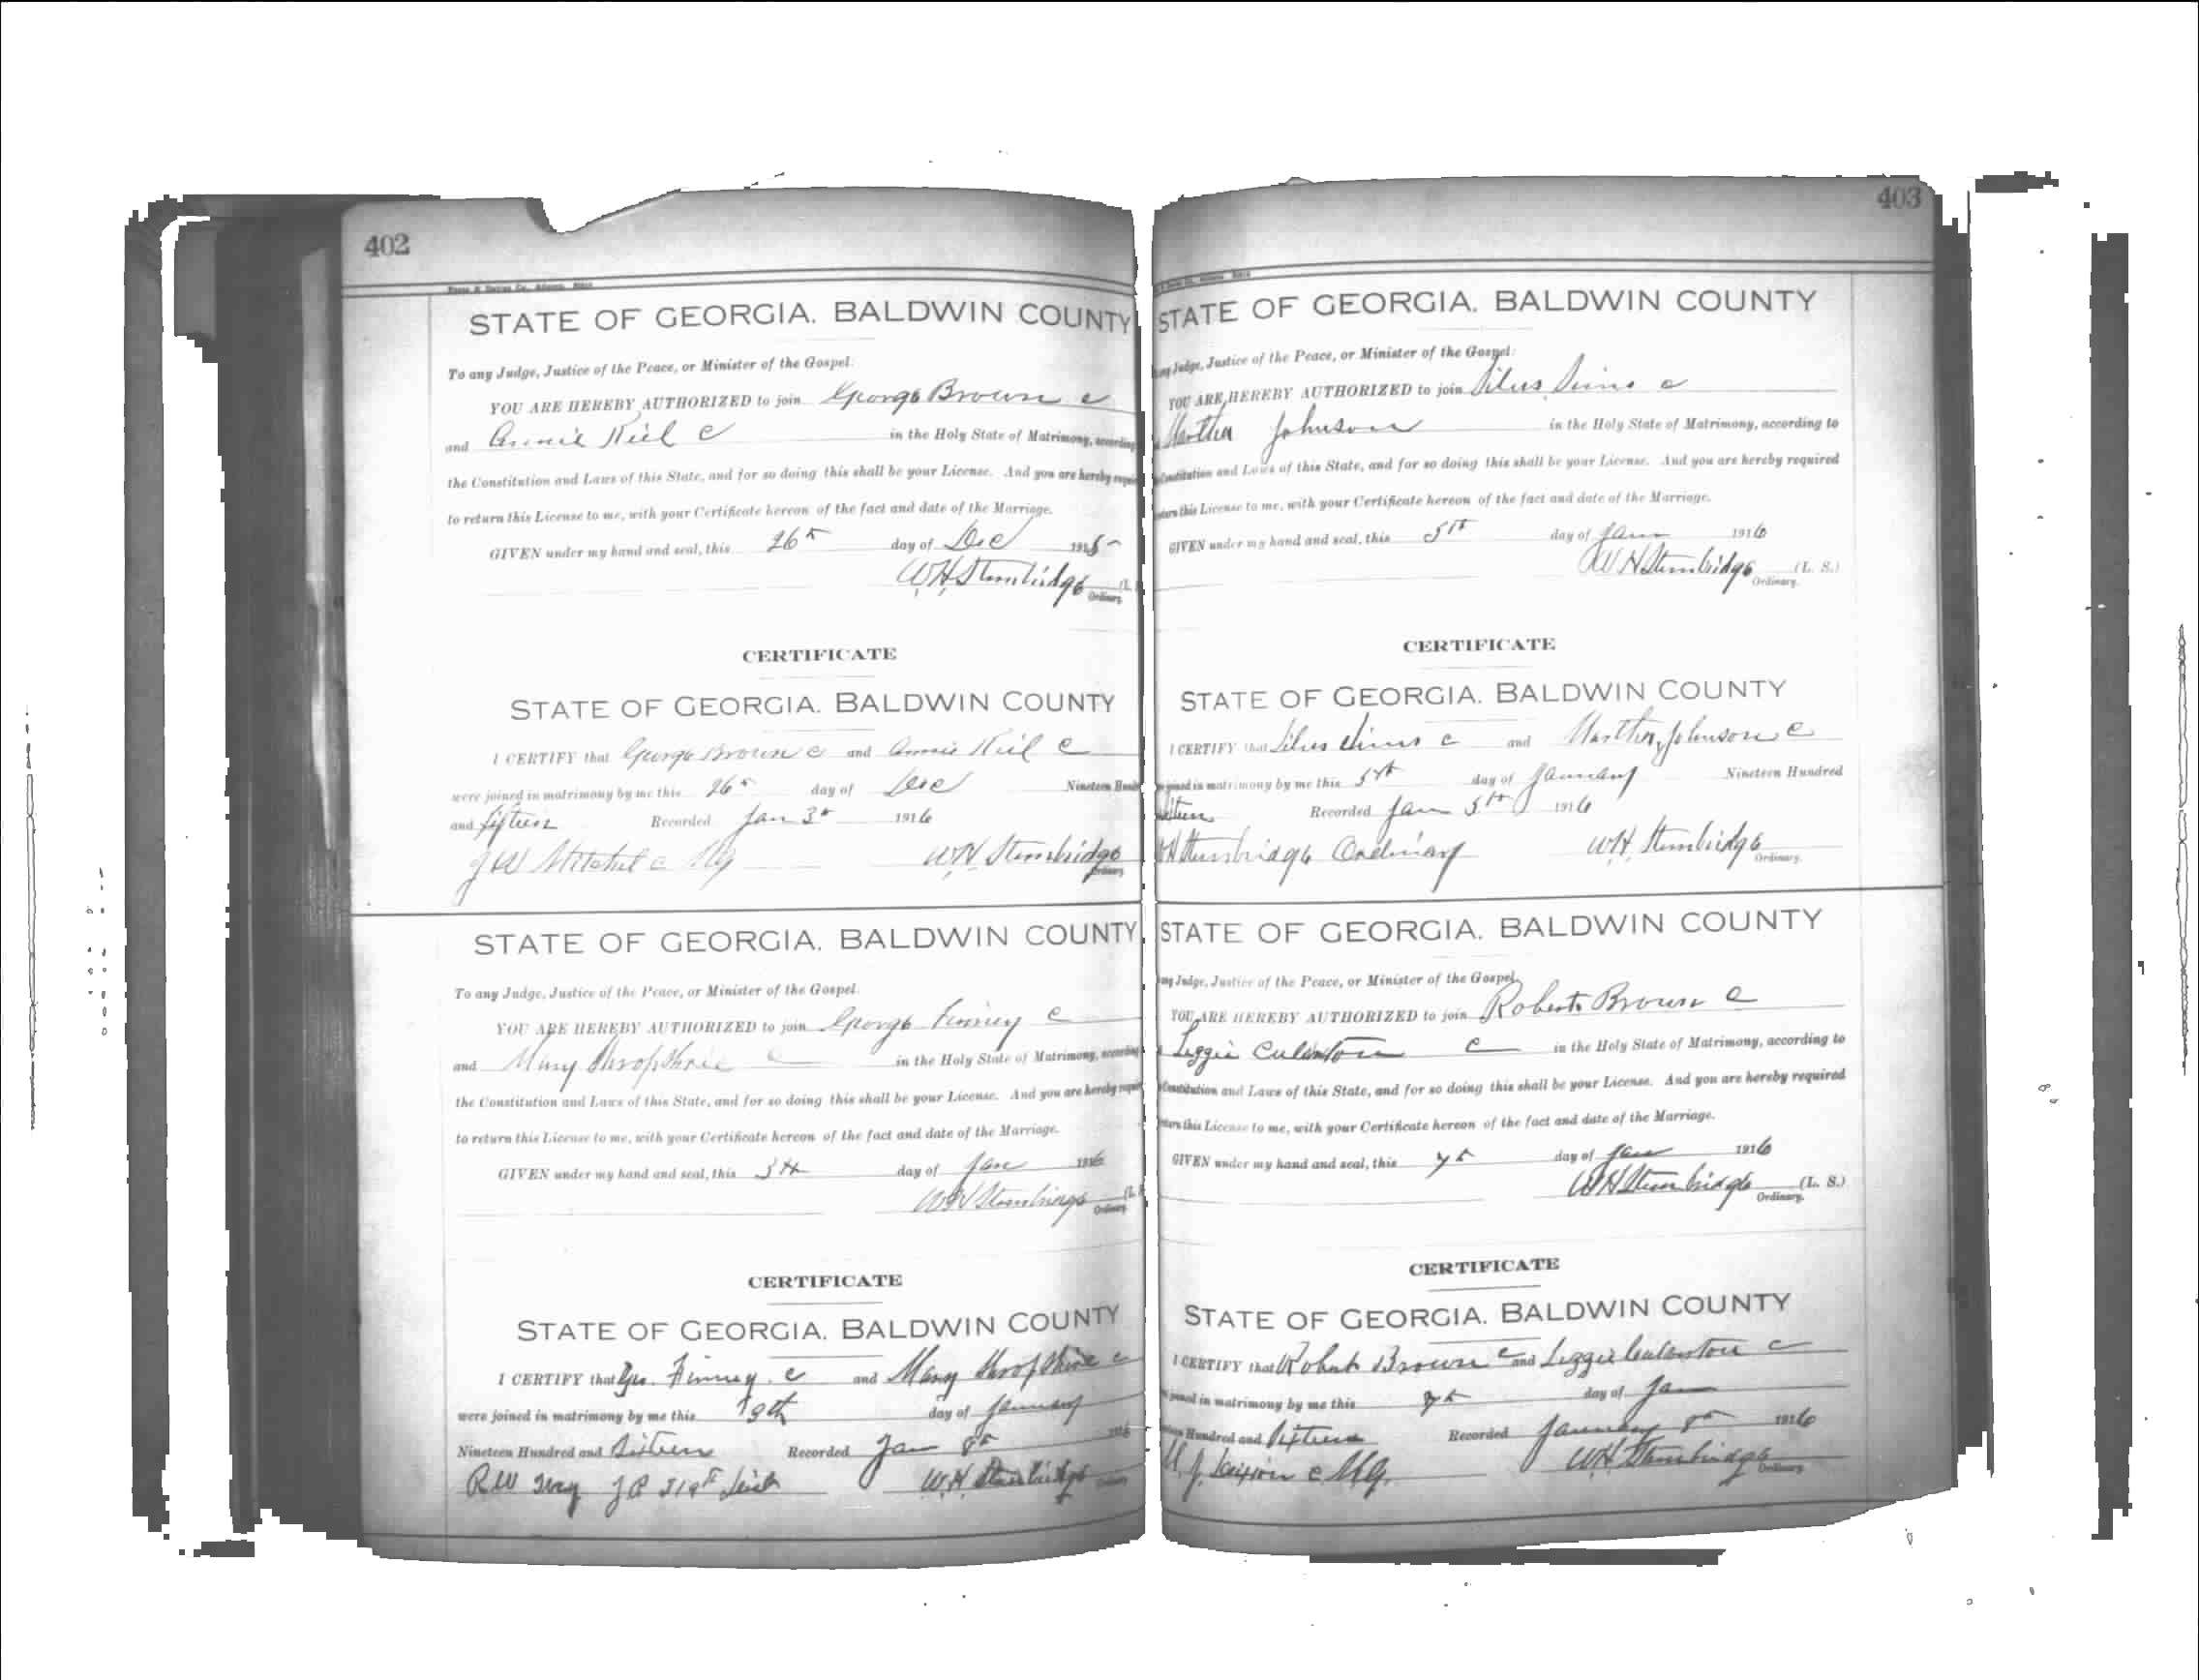 402
STATE OF GEORGIA. BALDWIN COUNTY
To any Judge, Justice of the Peace, or Minister of the Gospel:
YOU ARE HEREBY AUTHORIZED to join George Brown c
and Annie Kiel c in the Holy State of Matrimony, according
the Constitution and Laws of this State, and for so doing this shall be your License. And you are hereby
to return this License to me, with your Certificate hereon of the fact and date of the Marriage.
GIVEN under my hand and seal, this 26th day of Dec 1915
W.H. Stembridge (L.
Ordinary.
CERTIFICATE
STATE OF GEORGIA. BALDWIN COUNTY
I CERTIFY that George Brown c and Annie Kiel c
were joined in matrimony by me this 26th day of Dec Nineteen
and fifteen Recorded Jan 3rd 1916
J W Mitchel c Mg W.H. Stembridge
Ordinary
STATE OF GEORGIA. BALDWIN COUNTY
To any Judge, Justice of the Peace, or Minister of the Gospel.
YOU ARE HEREBY AUTHORIZED to join George Finney c
and Mary Shropshire c in the Holy State of Matrimony, according
the Constitution and Laws of this State, and for so doing this shall be your License. And you are hereby
to return this License to me, with your Certificate hereon of the fact and date of the Marriage.
GIVEN under my hand and seal, this day of Jan 1916
W H Stembridge (L.
Ordinary.
CERTIFICATE
STATE OF GEORGIA. BALDWIN COUNTY
I CERTIFY that Geo. Finney c and Mary Shropshire c
were joined in matrimony by me this day of January
Nineteen Hundred and Sixteen Recorded Jan 8th 1916
R W J P 319th W.H. Stembridge
403
STATE OF GEORGIA. BALDWIN COUNTY
any Judge, Justice of the Peace, or Minister of the Gospel:
YOU ARE HEREBY AUTHORIZED to join Silus Sims c
Martha Johnson in the Holy State of Matrimony, according to
Constitution and Laws of this State, and for so doing this shall be your License. And you are hereby required
return this License to me, with your Certificate hereon of the fact and date of the Marriage.
GIVEN under my hand and seal, this 5th day of Jan 1916
W H Stembridge (L. S.)
Ordinary.
CERTIFICATE
STATE OF GEORGIA. BALDWIN COUNTY
I CERTIFY that Silus Sims c and Martha Johnson c
joined in matrimony by me this 5th day of January Nineteen Hundred
Recorded Jan 5th 1916
W H Stembridge Ordinary W.H. Stembridge
Ordinary.
STATE OF GEORGIA. BALDWIN COUNTY
any Judge, Justice of the Peace, or Minister of the Gospel.
YOU ARE HEREBY AUTHORIZED to join Robert Brown c
Lizzie c in the Holy State of Matrimony, according to
Constitution and Laws of this State, and for so doing this shall be your License. And you are hereby required
return this License to me, with your Certificate hereon of the fact and date of the Marriage.
GIVEN under my hand and seal, this 7th day of Jan 1916
W H Stembridge (L. S.)
Ordinary.
CERTIFICATE
STATE OF GEORGIA. BALDWIN COUNTY
I CERTIFY that Robert Brown c and Lizzie c
joined in matrimony by me this 7th day of Jan
Hundred and Recorded January 8th 1916
c Mg. W H Stembridge
Ordinary.